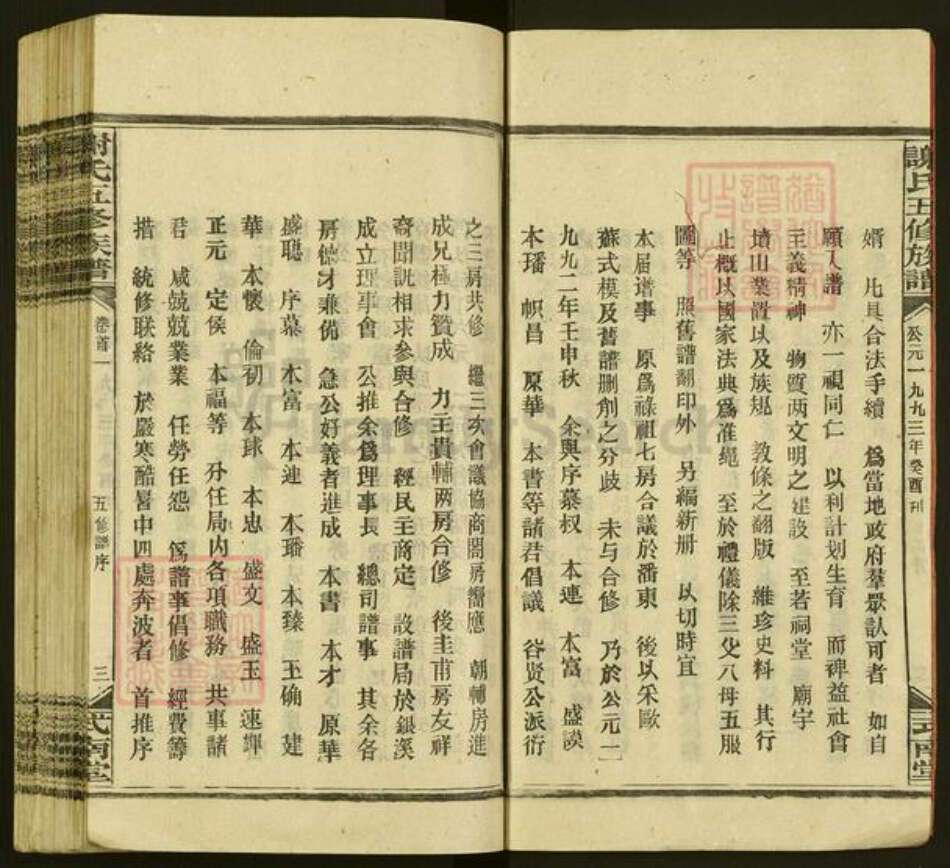 謝氏五修族譜
公元一九九三年癸酉刊
式南堂
婿 凡具合法手續 爲當地政府羣眾認可者 如自
願入譜 亦一視同仁 以利計划生育 而裨益社會
主義精神 物質两文明之建設 至若祠堂 廟宇
墳山業置以及族規 教條之翻版 維珍史料 其行
止概以國家法典爲准绳 至於禮儀除三父八母五服
圖等 照舊譜翻印外 另編新册 以切時宜
本届谱事 原爲祿祖七房合議於潘東 後以采歐
蘇式模及舊譜删創之分歧 未与合修 乃於公元一
九九二年壬申秋 余與序慕权 本連 本富 盛謨
本璠 帜昌 原華 本書等諸君倡議 谷贤公派衍
之三房共修 繼三次會議協商閤房嚮應 朝輔房進
成兄極力贊成 力主貴輔两房合修 後圭甫房友祥
奇聞訊相求參與合修 經民主商定 設譜局於銀溪
成立理事會 公推余爲理事長 總司譜事 其余各
房德才兼備 急公好義者進成 本書 本才 原華
盛聰 序慕 本富 本連 本璠 本臻 玉确 建
華 本懷 倫初 本球 本忠 盛文 盛玉 速輝
正元 定侯 本福等 分任局内各項職務 共事諸
君 咸兢兢業業 任勞任怨 爲譜事倡修 經費籌
措 統修联絡 於嚴寒酷暑中四處奔波者 首推序
謝氏五修族譜
卷首一
五修譜序
三
式南堂